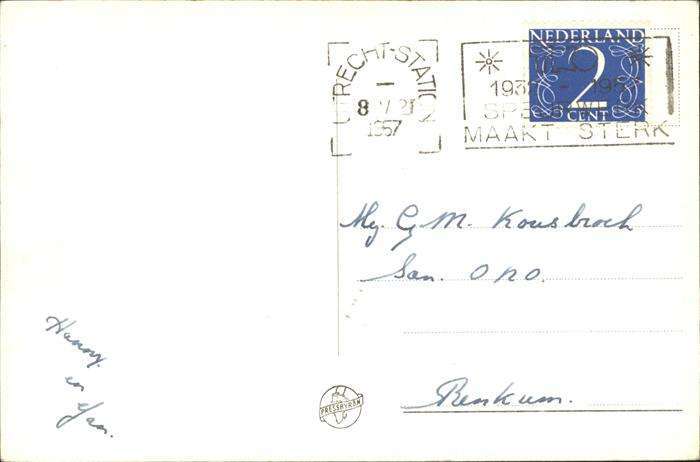 UTRECHT-STATION
8 V 21
1957
1932 - 1957
MAAKT STERK
NEDERLAND
2
CENT
Mej. C. M. Kousbroek
San. O.N.O.
Renkum.
Hanny
en
Jan.